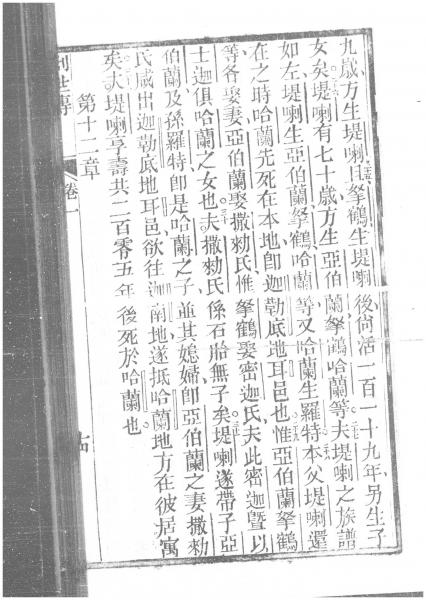 九歲、方生堤喇。且拏鶴生堤喇後、尚活一百一十九年、另生子
女矣。堤喇有七十歲、方生亞伯蘭、拏鶴、哈蘭等。夫堤喇之族譜
如左、堤喇生亞伯蘭、拏鶴、哈蘭等、又哈蘭生羅特。本父堤喇還
在之時、哈蘭先死在本地、卽迦勒底地耳邑也。惟亞伯蘭、拏鶴
等各娶妻、亞伯蘭娶撒勑氏、惟拏鶴娶密迦氏、夫此密迦曁以
士迦俱哈蘭之女也。夫撒勑氏係石胎無子矣。堤喇遂帶子亞
伯蘭及孫羅特、卽是哈蘭之子、並其媳婦、卽亞伯蘭之妻撒勑
氏咸出迦勒底地耳邑、欲往迦南地、遂抵哈蘭地方、在彼居寓
矣。夫堤喇享壽共二百零五年、後死於哈蘭也。
第十二章
卷一